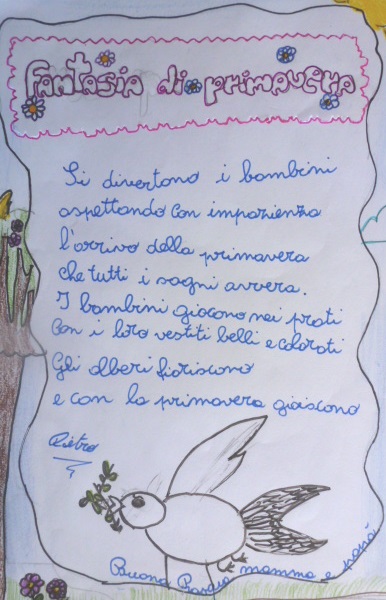 Fantasia di primavera
Si divertono i bambini
aspettando con impazienza
l'arrivo della primavera
che tutti i sogni avvera.
I bambini giocono nei prati
con i loro vestiti belli e colorati
Gli alberi fioriscono
e con la primavera gioiscono
Pietro
Buona Pasqua mamma e papà